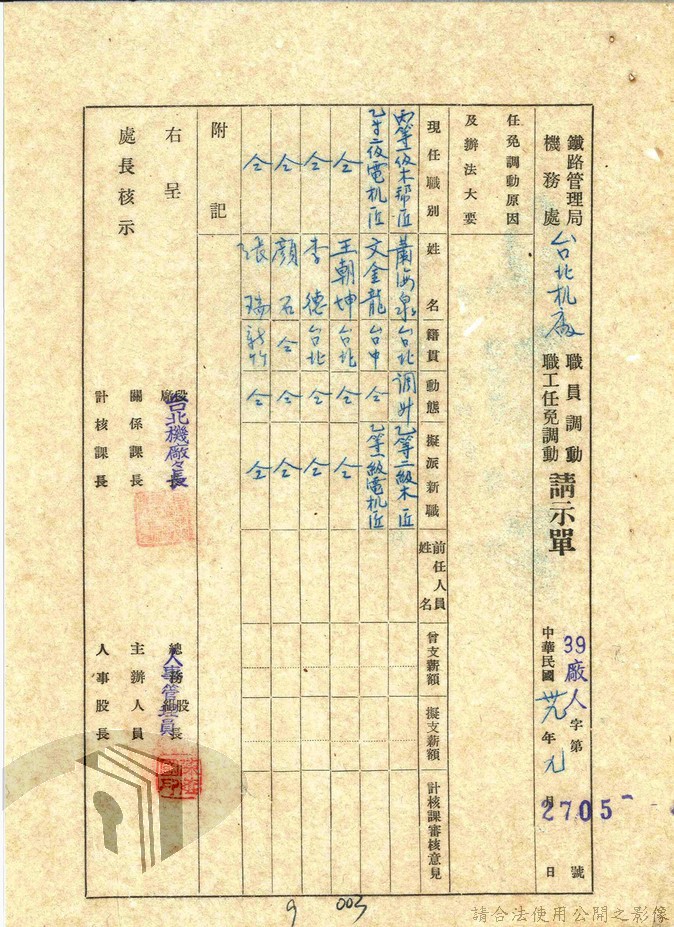 鐵路管理局
機務處
台北机廠
職員調動
職工任免調動
請示單
39廠人字第2705號
中華民國卅九年元月日
任免調動原因
及辦法大要
現任職別 姓名 籍貫 動態 擬派新職 前任人員姓名 曾支薪額 擬支薪額 計核課審核意見
丙等一級木帮匠 蕭海泉 台北 調升 乙等二級木匠
乙等二级電机匠 文金龍 台中 仝 乙等一級電机匠
仝 王朝坤 台北 仝 仝
仝 李德 台北 仝 仝
仝 顏石 仝 仝 仝
仝 張瑞 新竹 仝 仝
附記
右呈
處長核示
段廠長
台北機廠廠長
關係課長
計核課長
總務股長
人事管理員
主辦人員
人事股長
9 003
請合法使用公開之影像